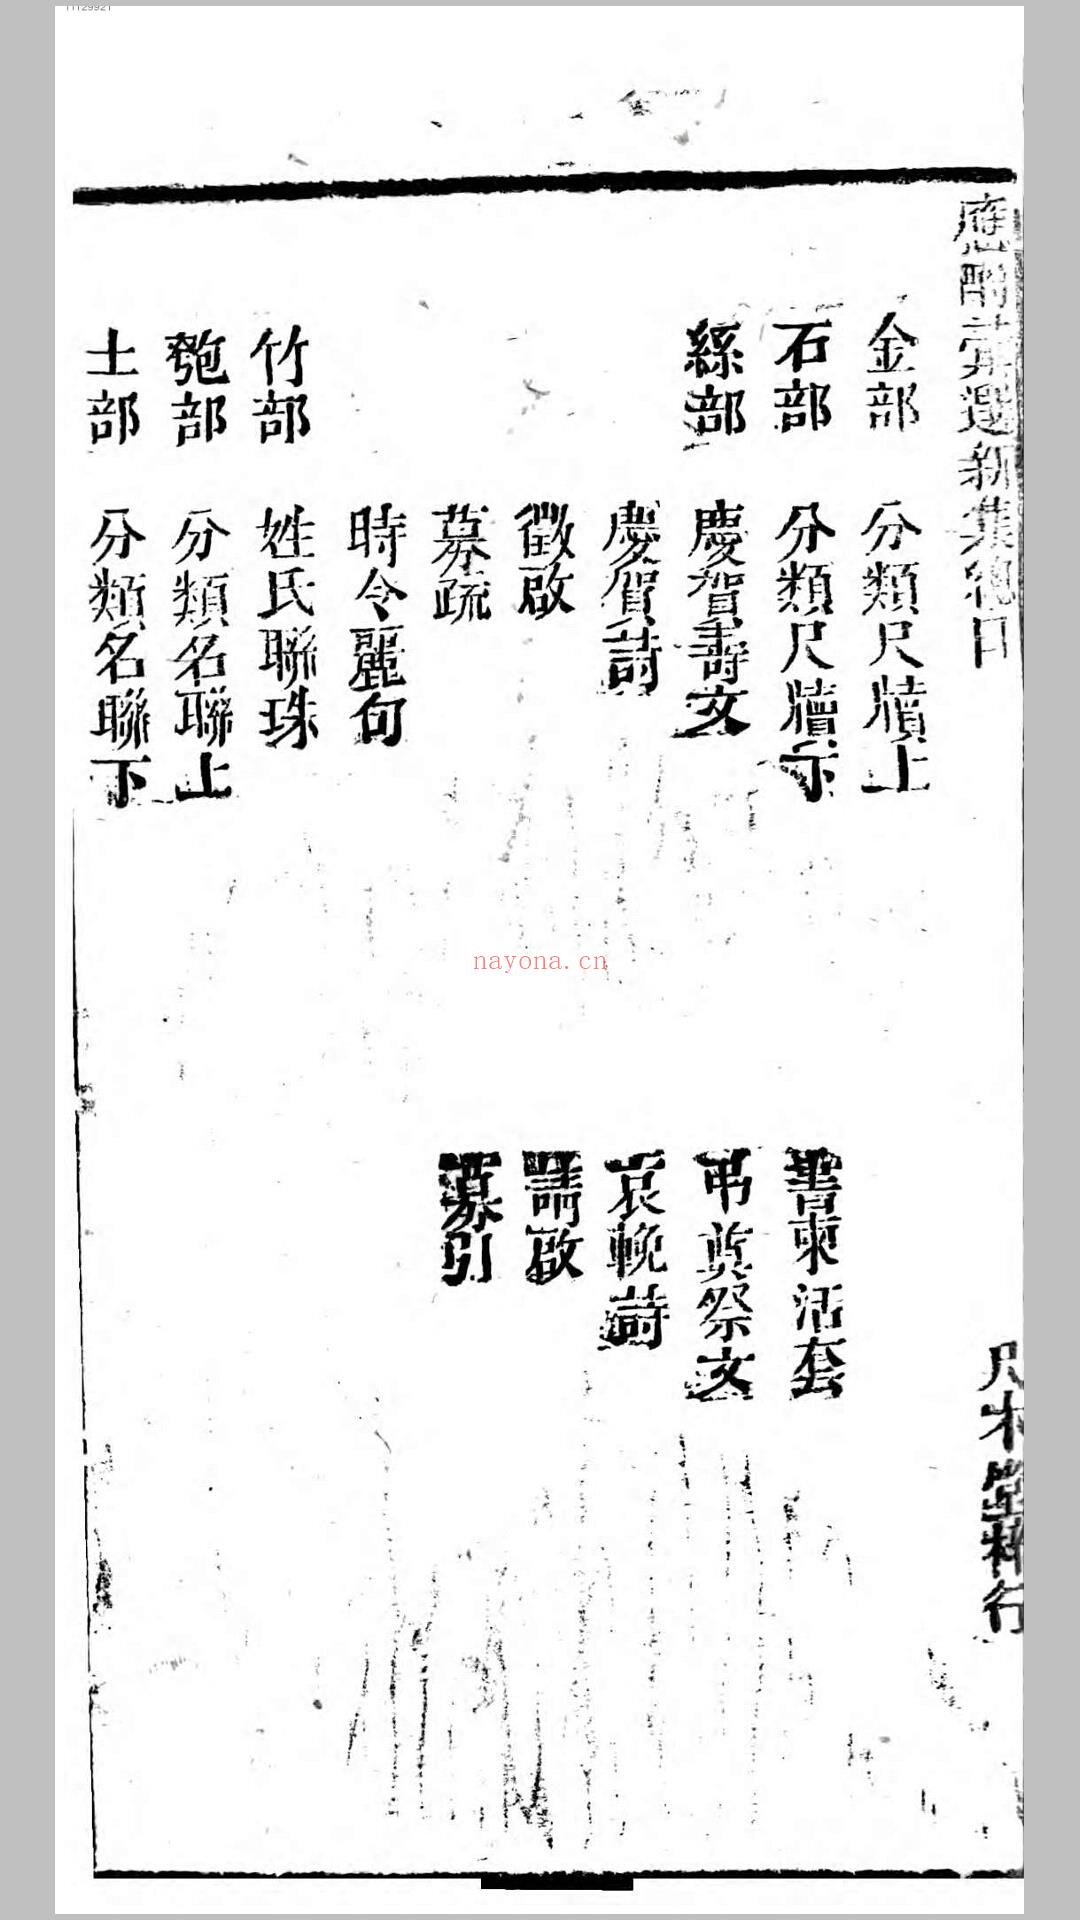 應酬彙選新集總目
尺木堂梓行
金部 分類尺牘上
石部 分類尺牘下 書柬活套
絲部 慶賀壽文 弔奠祭文
慶賀詩 哀輓詩
徵啟 請啟
募疏 募引
時令麗句
竹部 姓氏聯珠
匏部 分類名聯上
土部 分類名聯下
nayona.cn